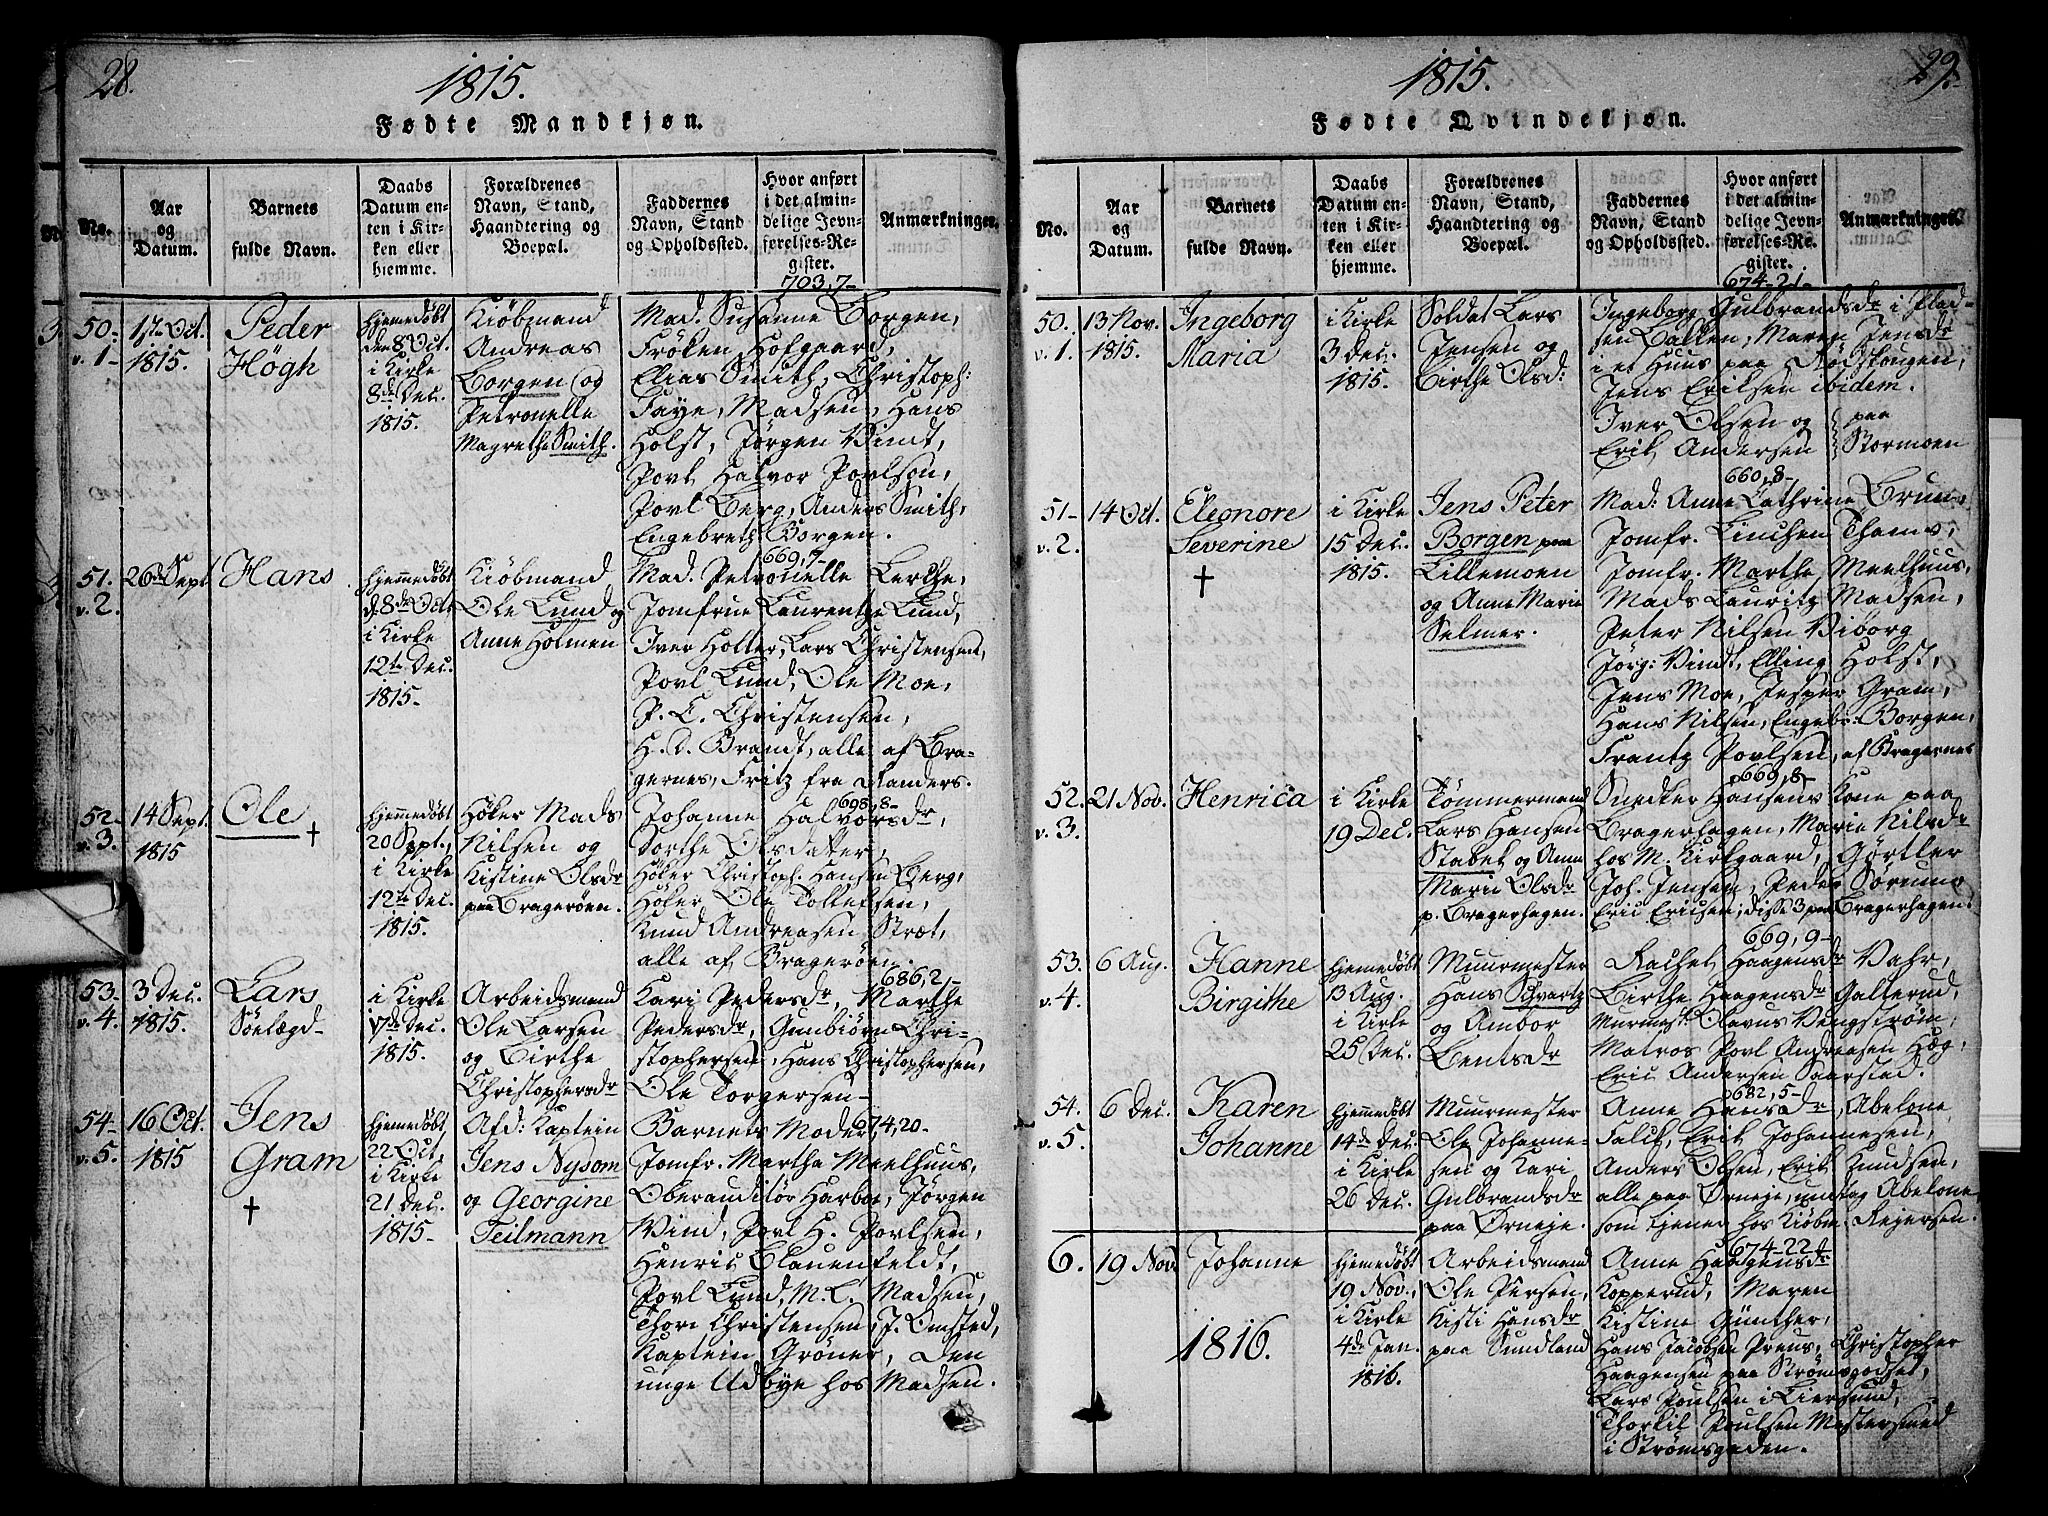 28.
1815.
Fødte Mandkjøn.
No.
Aar og Datum.
Barnets fulde Navn.
Daabs Datum enten i Kirken eller hjemme.
Forældrenes Navn, Stand, Haandtering og Boepæl.
Faddernes Navn, Stand og Opholdssted.
Hvor anført i det almindelige Jevnførelses-Register.
Anmærkninger.
703,7-
50-
v. 1-
Oct.
1815.
Peder
Högh
hjemedöbt
den 8 Oct.
i Kirke
8de Dec.
1815.
Kiöbmand
Andreas
Borgen og
Petronelle
Magrethe Smith.
Mad. Susanne Borgen,
Fröken Hofgaard,
Elias Smith, Christoph:
Faye, Madsen, Hans
Holst, Jörgen Vindt,
Povl Halvor Povlsen,
Povl Berg, Anders Smith,
Engebreth Borgen.
669,7-
51.
v. 2.
26de Sept
Hans
hjemmedöbt
d. 8de Oct
i Kirke
12te Dec.
1815.
Kiöbmand
Ole Lund og
Anne Holmen
Mad. Petronelle Lerche,
Jomfrue Laurentze Lund,
Iver Holter, Lars Christensen,
Povl Lund, Ole Moe,
P. C. Christensen,
H. D. Brandt, alle af Bra-
gernes, Fritz fra Randers.
698,8-
52-
v. 3.
14 Sept.
1815
Ole †
hjemedöbt
20 Sept.,
i Kirke
12te Dec.
1815.
Höker Mads
Nilsen og
Kistine Olsdr
paa Brageröen.
Johanne Halvorsdr,
Dorthe Olsdatter,
Höker Christoph. Hansen Berg,
Höker Ole Tollefsen,
Knud Andreasen Stræt,
alle af Brageröen.
686,2-
53-
v. 4.
3 Dec.
1815.
Lars
Söelægd-
i Kirke
17de Dec.
1815.
Arbeidsmand
Ole Larsen
og Birthe
Christophersdr
Kari Pedersdr, Marthe
Pedersdr, Gunbiörn Chri-
stophersen, Hans Christophersen,
Ole Torgersen-
674,20-
54-
v. 5.
16 Oct.
1815
Jens
Gram
†
hjemedöbt
22 Oct,
i Kirke
21 Dec.
1815-
Afd: Kaptein
Jens Nysom
og Georgine
Teilmann
Barnets Moder,
Jomfr. Martha Meelhuus,
Oberauditör Harboe, Jörgen
Wind, Povl H. Povlsen,
Henric Clauenfeldt,
Povl Lund, M. L. Madsen,
Thore Christensen, J. Omsted,
Kaptein Gröner, Den
unge Udbye hos Madsen.
29.
1815.
Fødte Qvindekjøn.
No.
Aar og Datum.
Barnets fulde Navn.
Daabs Datum enten i Kirken eller hjemme.
Forældrenes Navn, Stand, Haandtering og Boepæl.
Faddernes Navn, Stand og Opholdssted.
Hvor anført i det almindelige Jevnførelses-Register.
Anmærkninger.
674-21-
50.
v. 1.
13 Nov.
1815.
Ingeborg
Maria
i Kirke
3 Dec.
1815.
Soldat Lars
Jensen og
Birthe Olsd:
Ingeborg Gulbrandsdr i Plad-
sen Bakken, Maren Jensdr
i et Huus paa Rödskougen,
Jens Eriksen ibidem.
Iver Olsen og
Erik Andersen
paa
Stormoen
660,8-
51-
v. 2.
14 Oct.
Eleonore
Severine
†
i Kirke
15 Dec.
1815.
Jens Peter
Borgen paa
Lillemoen
og Anne Marie
Selmer.
Mad: Anne Cathrine Brun,
Jomfr. Linchen Thams,
Jomfr. Marthe Meelhuus,
Mads Lauritz Madsen,
Peter Nilsen Viborg
Jörg: Vindt, Elling Holst,
Jens Moe, Jesper Gram,
Hans Nilsen, Engebr: Borgen,
Frantz Povlsen, af Bragernes
669,8-
52.
v. 3.
21 Nov.
Henrica
i Kirke
19 Dec.
Tömmermand
Lars Hansen
Stabel og Anne
Marie Olsdr
p. Bragerhagen.
Snedker Hansens Kone paa
Bragerhagen, Marie Nilsdr
hos M. Kirkgaard, Görtler
Joh. Jensen, Peder Sörum
Eric Ericsen, disse 3 paa Bragerhagen.
669,9-
53.
v. 4.
6 Aug.
Hanne
Birgithe
hjemedöbt
13 Aug.
i Kirke
25 Dec.
Muurmester
Hans Schvartz
og Ambor
Bentsdr
Rachel Haagensdr Vahr,
Birthe Haagensdr Galterud,
Murmest. Olavus Vengström,
Matros Povl Andreasen Hæg,
Eric Andersen Saarsted.
682,5-
54.
v. 5.
6 Dec.
Karen
Johanne
hjemedöbt
14de Dec.
i Kirke
26 Dec.
Muurmester
Ole Johanne-
sen og Kari
Gulbrandsdr
paa Örneje.
Anne Hansdr, Abelone
Falch, Erik Johannesen,
Anders Olsen, Erik Knudsen,
alle paa Örneje, undtag Abelone
som tjener hos Kiöbm. Rejersen.
674-22
6.
19 Nov
Johanne
1816.
hjemedöbt
19 Nov.,
i Kirke
4de Jan.
1816.
Arbeidsmand
Ole Persen,
Kisti Hansdr
paa Sundland
Anne Haagensdr
Kopperud, Maren
Kistine Günther,
Hans Jacobsen Preus, Christopher
Haagensen paa Strömsgodset,
Lars Poulsen i Liersund,
Thorkil Poulsen Mestersmed
i Strömsgaden.